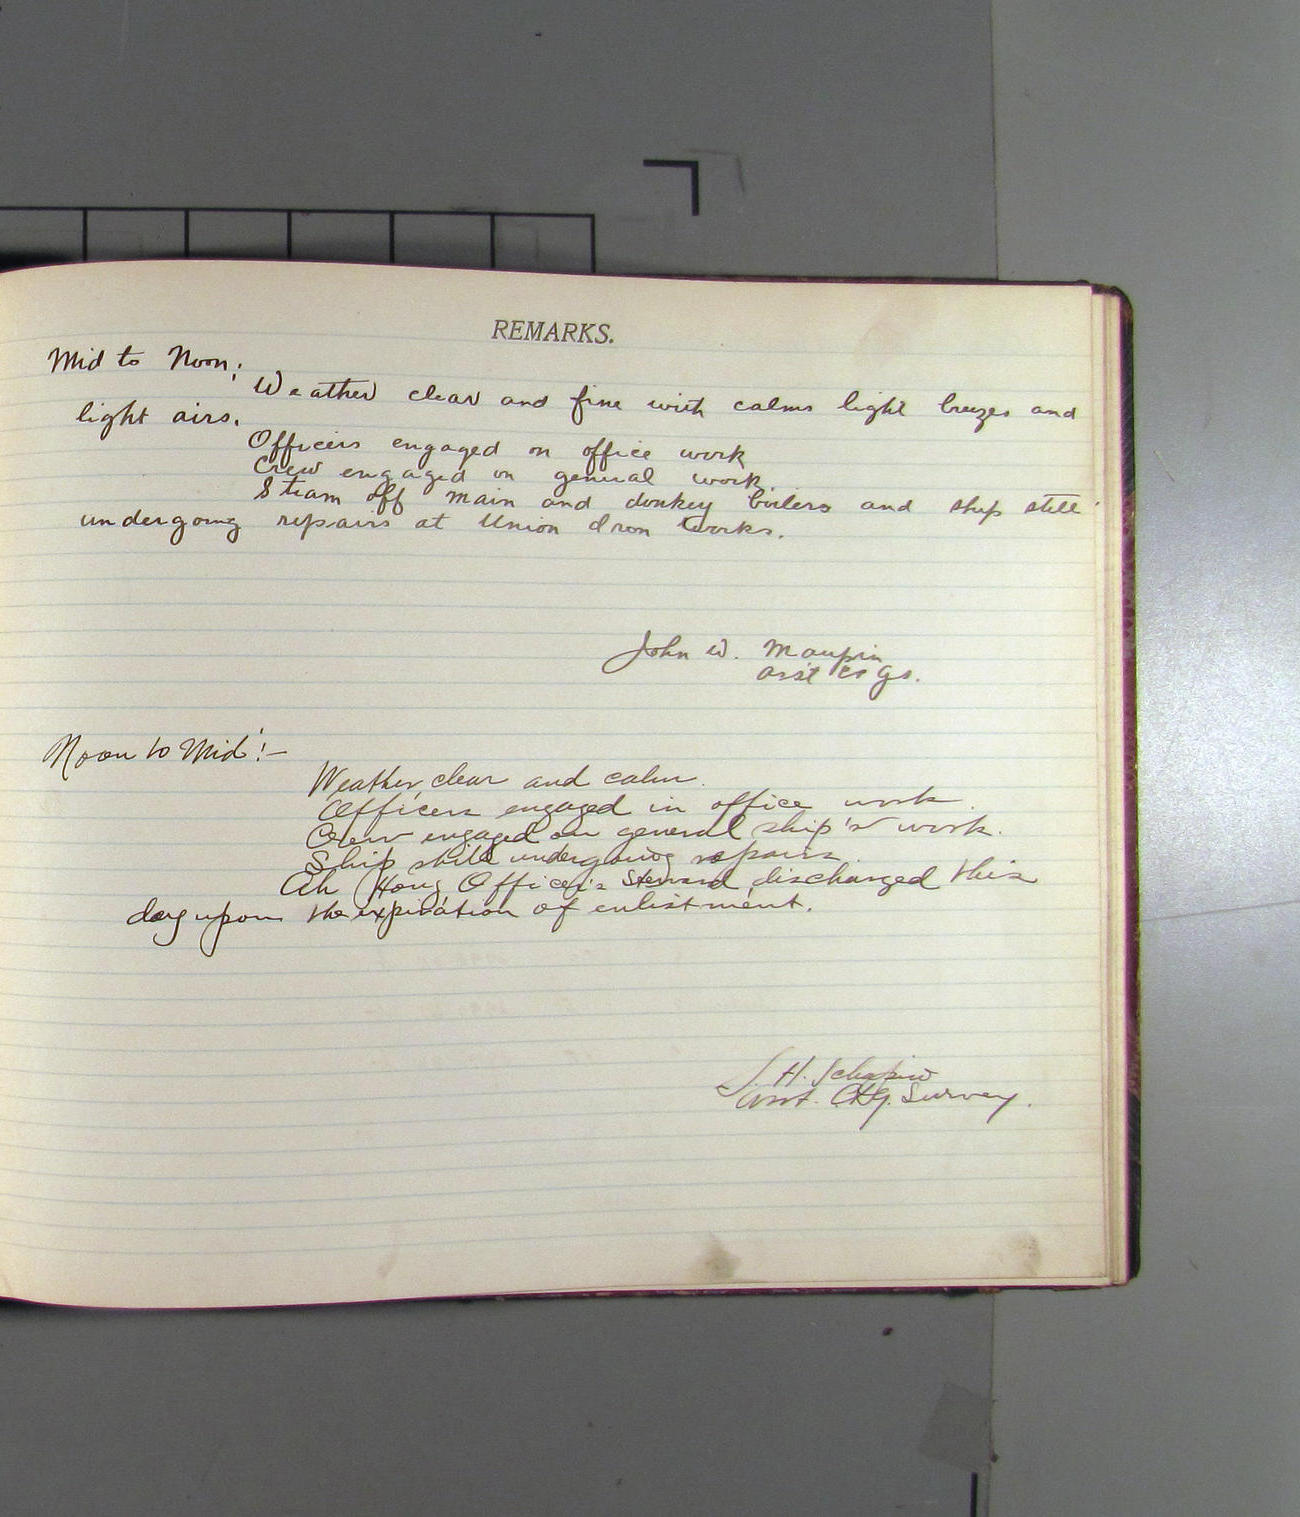 REMARKS.
Mid to Noon;
Weather clear and fine with calms light breezes and
light airs.
Officers engaged on office work
Crew engaged on general work.
Steam off main and donkey boilers and ship still
undergoing repairs at Union Iron Works.
John W. Maupin
Asst C&GS.
Noon to Mid:-
Weather, clear and calm.
Officers engaged in office work.
Crew engaged on general ship's work.
Ship still undergoing repairs.
Ah Hong Officer's Steward discharged this
day upon the expiration of enlistment.
H. Schapiro
Asst. C&G. Survey.